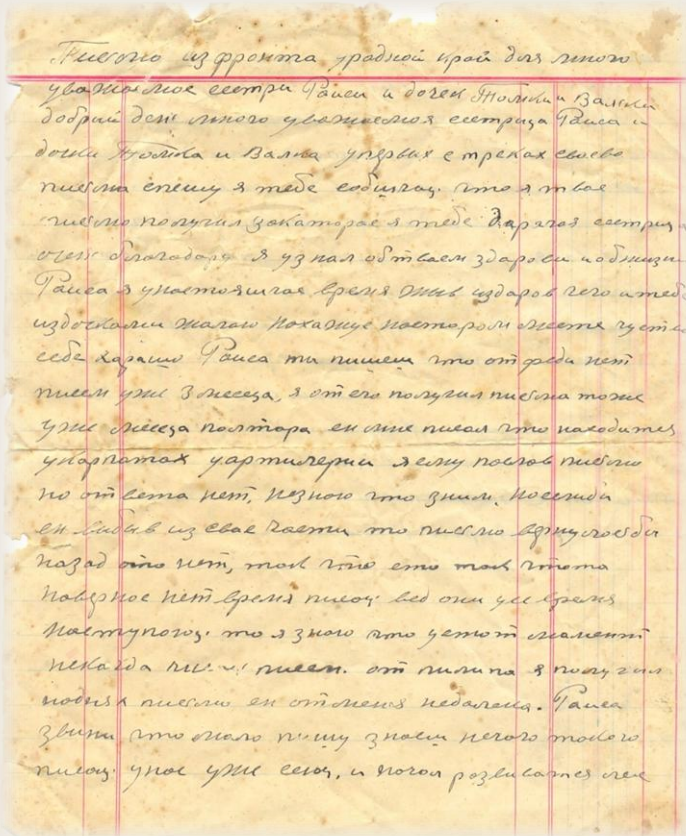 Писмо из фронта уродной край для много
уважаемое сестри Раиси и дочек Томки и Валки
добрий ден много уважаемоя сестрица Раиса и
дочки Томка и Валка упервых стреках своево
писма спешу я тебе собщчац. что я твае
писмо получил закаторае я тебе дарагоя сестрица
очен благодару я узнал обтваем здарови иобжизни
Раиса я унастояшчае время жыв издаров чего итебе
издочками жалаю пакажус настаром месте чуству
себе харашо Раиса ти пишеш что отфеди нет
писем уже 3 месеца, я отего получил писмо тоже
уже месеца полтара ен мне писал что находитса
укарпатах уартилерии я ему послов писмо
но ответа нет, незною что зним, но еслиби
ен вибыв из свае части то писмо вернулосьби
назад ато нет, так что ето так чтота
наверное нет время писац. вед они усе время
наступаюц. то я зною что уетот момент
некагда писем. от пилипа я получил
нодних писмо ен отменя недалека. Раиса
звини что мало пишу знаеш нечого такого
писац. унас уже сеюц, и начал розвиватся лес